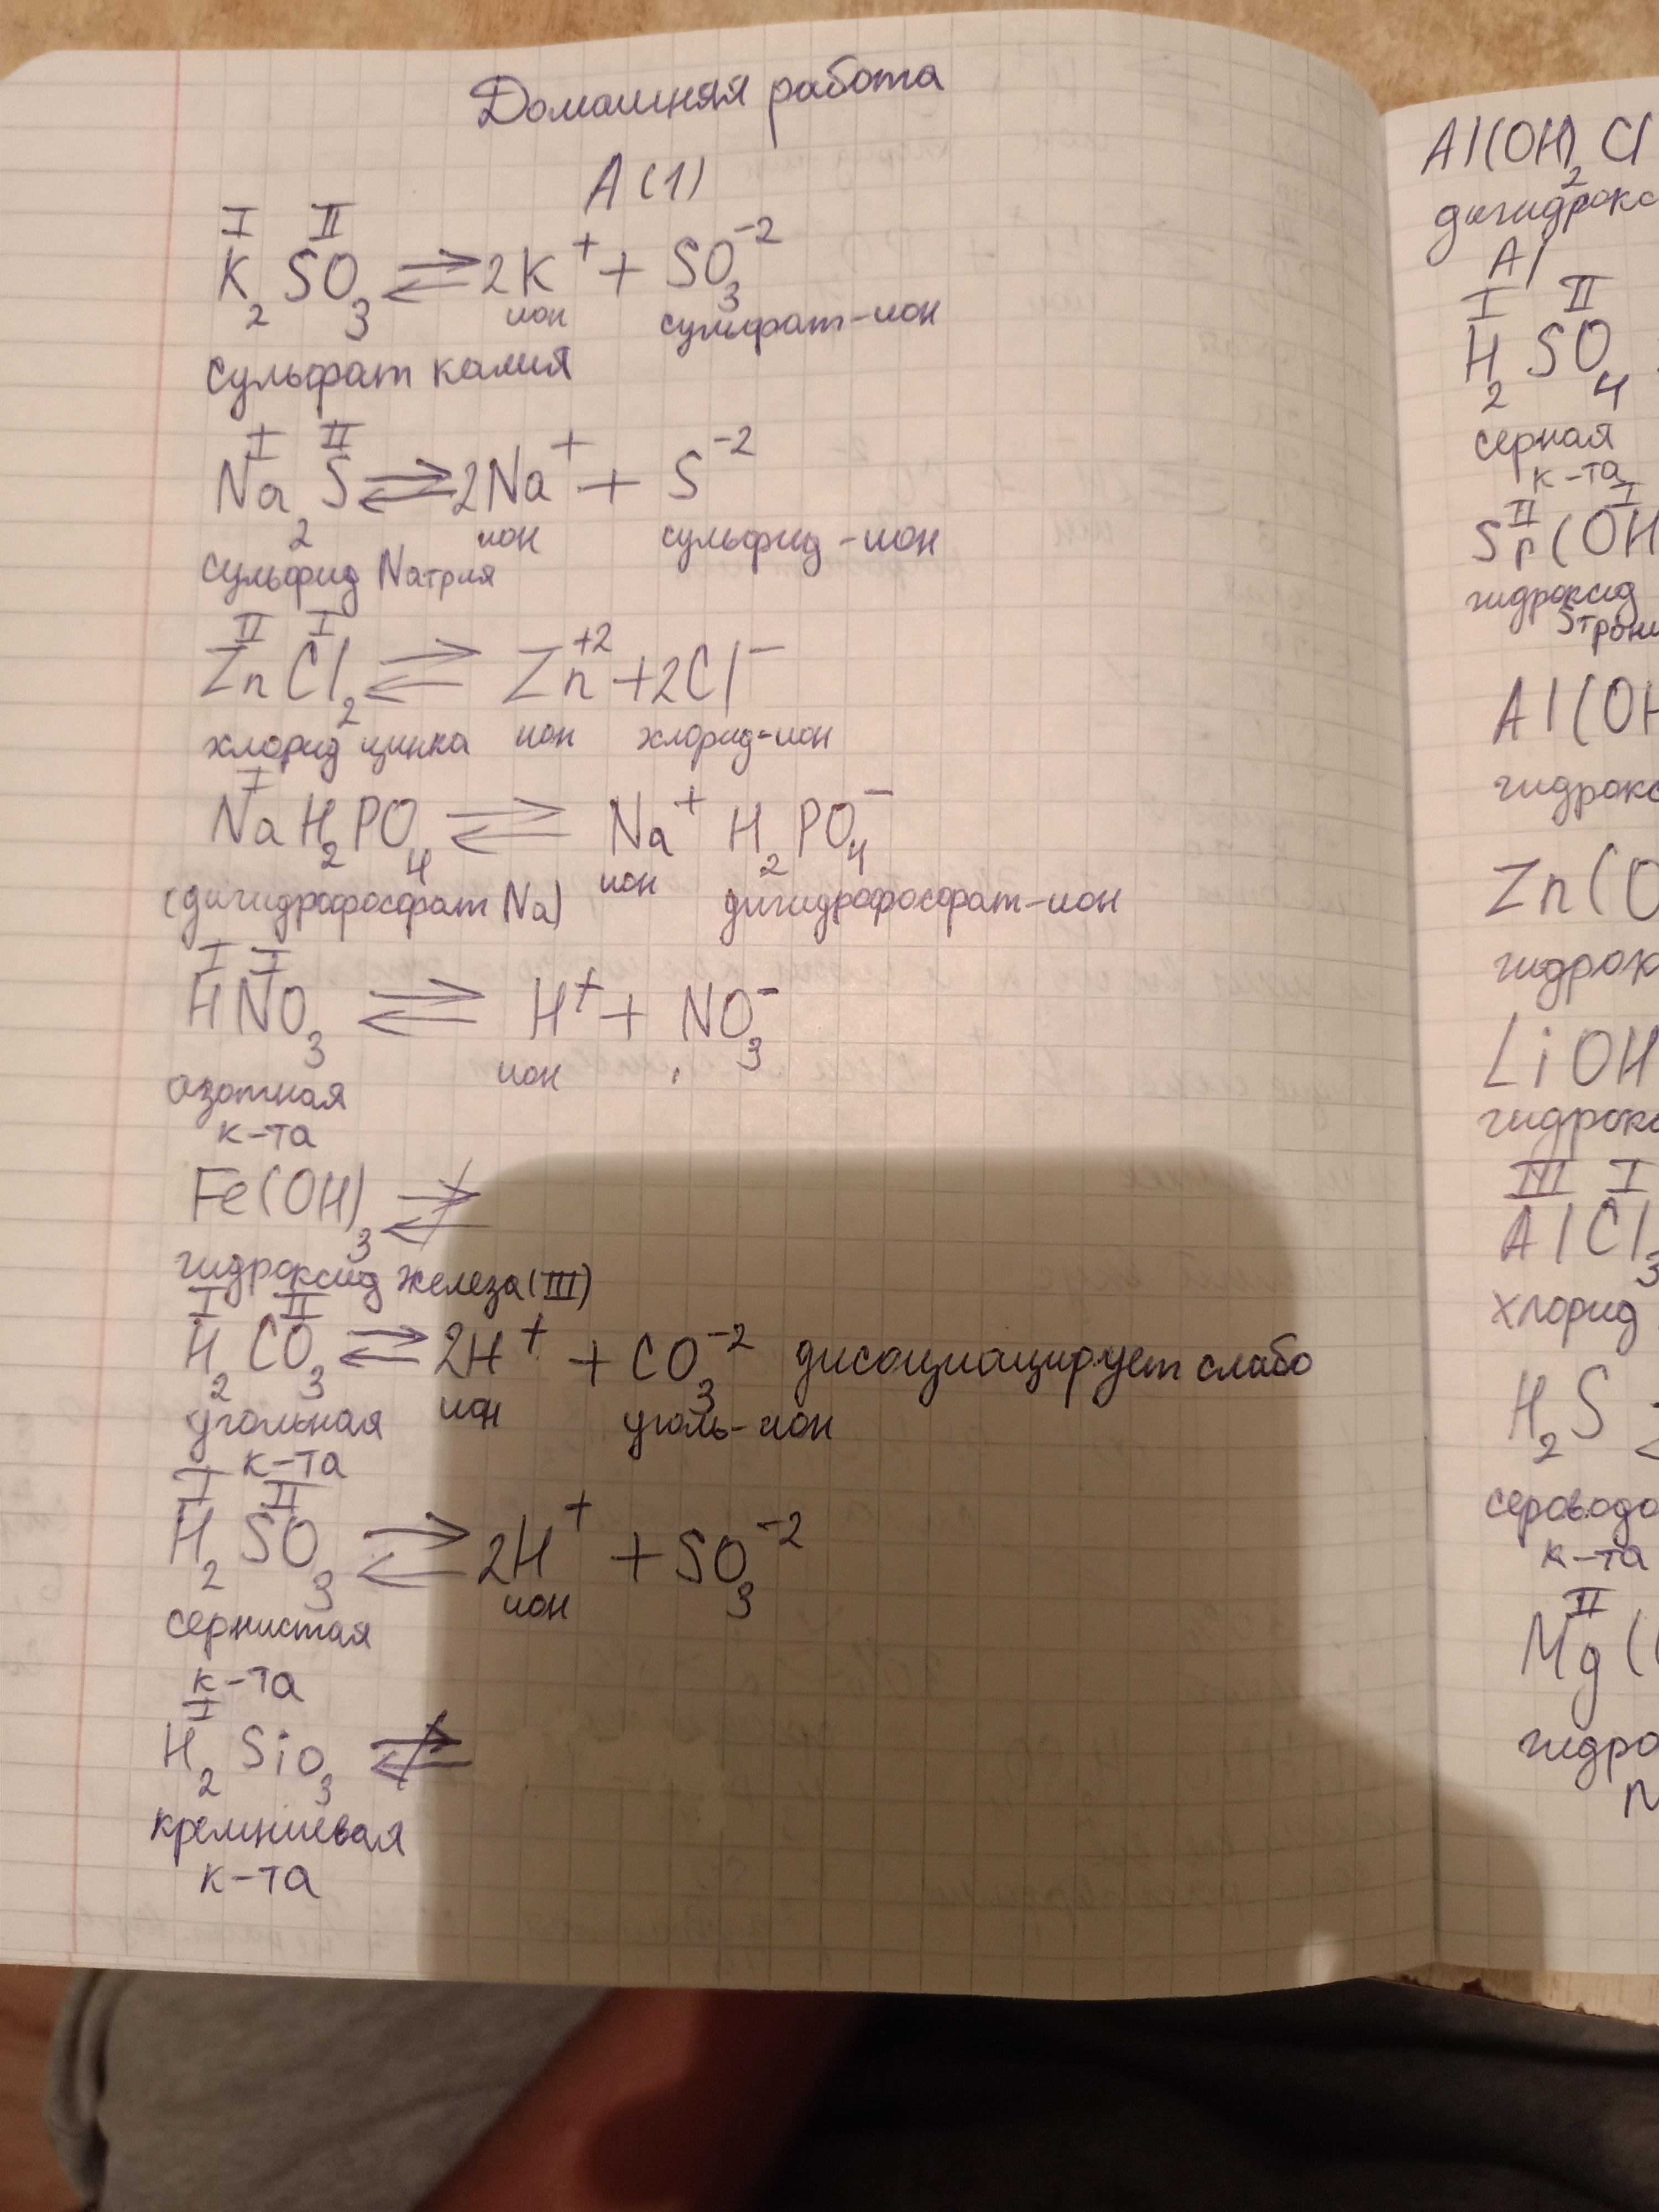 Домашняя работа
A (1)
I II
K₂SO₃ ⇌ 2K⁺ + SO₃⁻²
ион сульфат-ион
сульфат калия
I II
Na₂S ⇌ 2Na⁺ + S⁻²
ион сульфид-ион
сульфид Nатрия
II I
ZnCl₂ ⇌ Zn⁺² + 2Cl⁻
хлорид цинка ион хлорид-ион
I
NaH₂PO₄ ⇌ Na⁺ H₂PO₄⁻
(дигидрофосфат Na) ион дигидрофосфат-ион
I I
HNO₃ ⇌ H⁺ + NO₃⁻
ион
азотная
к-та
Fe(OH)₃ ⇌̸
гидроксид железа (III)
I II
H₂CO₃ ⇌ 2H⁺ + CO₃⁻² дисоциацирует слабо
угольная ион уголь-ион
к-та
I II
H₂SO₃ ⇌ 2H⁺ + SO₃⁻²
ион
сернистая
к-та
I
H₂SiO₃ ⇌̸
кремниевая
к-та
Al(OH)₂Cl
дигидрокс
Al
I II
H₂SO₄
серная
к-та
II I
Sr(OH
гидроксид
Sтрон
Al(OH
гидрокс
Zn(O
гидрок
LiOH
гидрокс
III I
AlCl₃
хлорид
H₂S
сероводо
к-та
II
Mg(
гидро